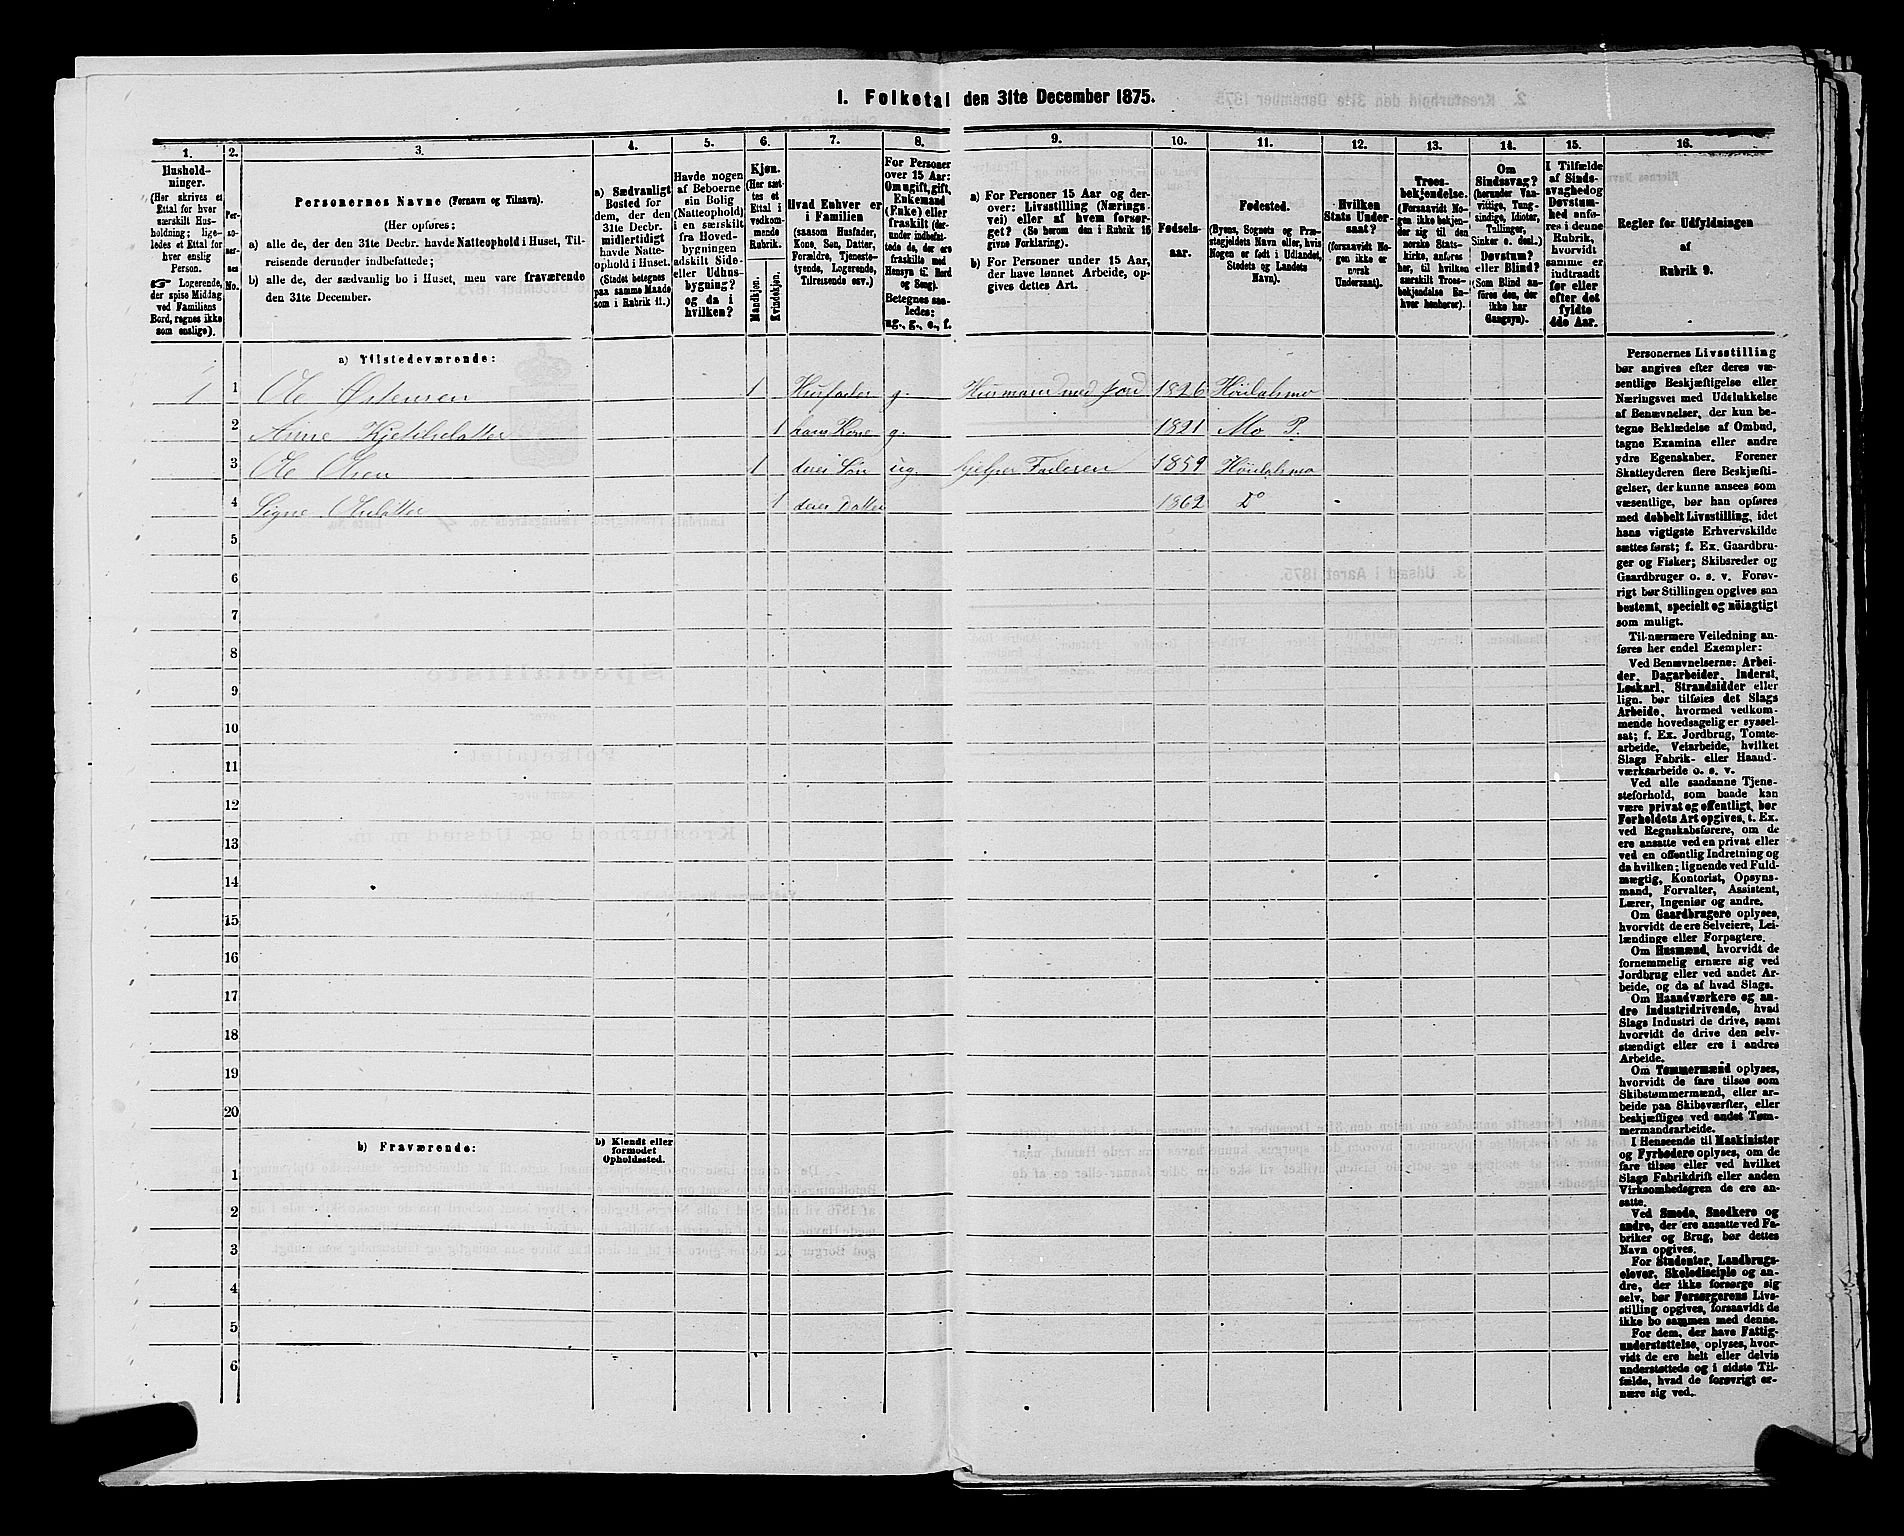 1. Folketal den 31te December 1875.
1. 2. 3. 4. 5. 6. 7. 8. 9. 10. 11. 12. 13. 14. 15. 16.
Husholdninger.
(Her skrives et
Ettal for hver
særskilt Husholdning; ligeledes
et Ettal for
hver enslig
Person.
☞ Logerende,
der spise Middag
ved Familiens
Bord, regnes ikke
som enslige).
Personernes No.
Personernes Navne (Fornavn og Tilnavn).
(Her opføres:
a) alle de, der den 31te Decbr. havde Natteophold i Huset, Tilreisende derunder indbefattede;
b) alle de, der sædvanlig bo i Huset, men vare fraværende
den 31te December.
a) Sædvanligt
Bosted for
dem, der den
31te Decbr.
midlertidigt
havde Natteophold
i Huset.
(Stedet betegnes
paa samme Maade
som i Rubrik 11.)
Havde nogen
af Beboerne
sin Bolig
(Natteophold)
i en særskilt
fra Hovedbygningen
adskilt Sideeller
Udhusbygning?
og da i
hvilken?
Kjøn.
(Her sættes
et
Ettal i
vedkommende
Rubrik.
Mandkjøn.
Kvindekjøn.
Hvad Enhver er
i Familien
(saasom Husfader,
Kone, Søn, Datter,
Forældre, Tjenestetyende,
Logerende,
Tilreisende osv.)
For Personer
over 15 Aar:
Om ugift, gift,
Enkemand
(Enke) eller
fraskilt (derunder
indbefattede
de, der ere
fraskilte med
Hensyn til Bord
og Seng).
Betegnes saaledes:
ug., g., e., f.
a) For Personer 15 Aar og derover:
Livsstilling (Næringsvei)
eller af hvem forsørget?
(Se herom den i Rubrik 16
givne Forklaring).
b) For Personer under 15 Aar,
der have lønnet Arbeide, opgives
dettes Art.
Fødselsaar.
Fødested.
(Byens, Sognets og Præstegjeldets
Navn eller, hvis
Nogen er født i Udlandet,
Stedets og Landets
Navn).
Hvilken
Stats Undersaat?
(forsaavidt Nogen
ikke er
norsk
Undersaat).
Troesbekjendelse.
(Forsaavidt Nogen
ikke bekjender
sig til den
norske Statskirke,
anføres
her, til hvilken
særskilt Troesbekjendelse
Enhver
henhører).
Om
Sindssvag?
(herunder Vanvittige,
Tungsindige,
Idioter,
Tullinger,
Sinker o. desl.)
Døvstum?
eller Blind?
(Som Blind anføres
den, der
ikke har
Gangsyn).
I Tilfælde
af Sindssvaghed
og
Døvstumhed
anføres
i denne
Rubrik,
hvorvidt
samme er
indtraadt
før eller
efter det
fyldte
4de Aar.
Regler for Udfyldningen
af
Rubrik 9.
a) Tilstedeværende:
1 1 Ole Østensen 1 Husfader g. Husmand med Jord 1826 Høidalsmo
2 Anne Kjetilsdatter 1 hans Kone g. 1821 Mo P.
3 Ole Olsen 1 deres Søn ug. hjelper Faderen 1859 Høidalsmo
4 Signe Olsdatter 1 deres Datter 1862 Do
5
6
7
8
9
10
11
12
13
14
15
16
17
18
19
20
b) Fraværende:
b) Kjendt eller
formodet
Opholdssted.
1
2
3
4
5
6
Personernes Livsstilling
bør angives efter deres væsentlige
Beskjæftigelse eller
Næringsvei med Udelukkelse
af Benævnelser, der kun betegne
Beklædelse af Ombud,
tagne Examina eller andre
ydre Egenskaber. Forener
Skatteyderen flere Beskjæftigelser,
der kunne ansees som
væsentlige, bør han opføres
med dobbelt Livsstilling, idet
hans vigtigste Erhvervskilde
sættes først; f. Ex. Gaardbruger
og Fisker; Skibsreder og
Gaardbruger o. s. v. Forøvrigt
bør Stillingen opgives saa
bestemt, specielt og nöiagtigt
som muligt.
Til nærmere Veiledning anføres
her endel Exempler:
Ved Benævnelserne: Arbeider,
Dagarbeider, Inderst,
Løskarl, Strandsidder eller
lign. bør tilføies det Slags
Arbeide, hvormed vedkommende
hovedsagelig er sysselsat;
f. Ex. Jordbrug, Tomtearbeide,
Veiarbeide, hvilket
Slags Fabrik- eller Haandværksarbeide
o. s. v.
Ved alle saadanne Tjenesteforhold,
som baade kan
være privat og offentligt, bør
Forholdets Art opgives, t. Ex.
ved Regnskabsførere, om de
ere ansatte ved en privat eller
ved en offentlig Indretning og
da hvilken; lignende ved Fuldmægtig,
Kontorist, Opsynsmand,
Forvalter, Assistent,
Lærer, Ingeniør og andre.
Om Gaardbrugere oplyses,
hvorvidt de ere Selveiere, Leilændinge
eller Forpagtere.
Om Husmænd, hvorvidt de
fornemmelig ernære sig ved
Jordbrug eller ved andet Arbeide,
og da af hvad Slags.
Om Haandværkere og andre
Industridrivende, hvad
Slags Industri de drive, samt
hvorvidt de drive den selvstændigt
eller ere i andres
Arbeide.
Om Tømmermænd oplyses,
hvorvidt de fare tilsøs som
Skibstømmermænd, eller arbeide
paa Skibsværfter, eller
beskjæftiges ved andet Tømmermandsarbeide.
I Henseende til Maskinister
og Fyrbødere oplyses, om de
fare tilsøs eller ved hvilket
Slags Fabrikdrift eller anden
Virksomhedsgren de ere ansatte.
Ved Smede, Snedkere og
andre, der ere ansatte ved Fabriker
og Brug, bør dettes
Navn opgives.
For Studenter, Landbrugselever,
Skoledisciple og andre,
der ikke forsørge sig
selv, bør Forsørgerens Livsstilling
opgives, forsaavidt de
ikke bo sammen med denne.
For dem, der have Fattigunderstøttelse,
oplyses, hvorvidt
de ere helt eller delvis
understøttede og i sidste Tilfælde,
hvad de forøvrigt ernære
sig ved.